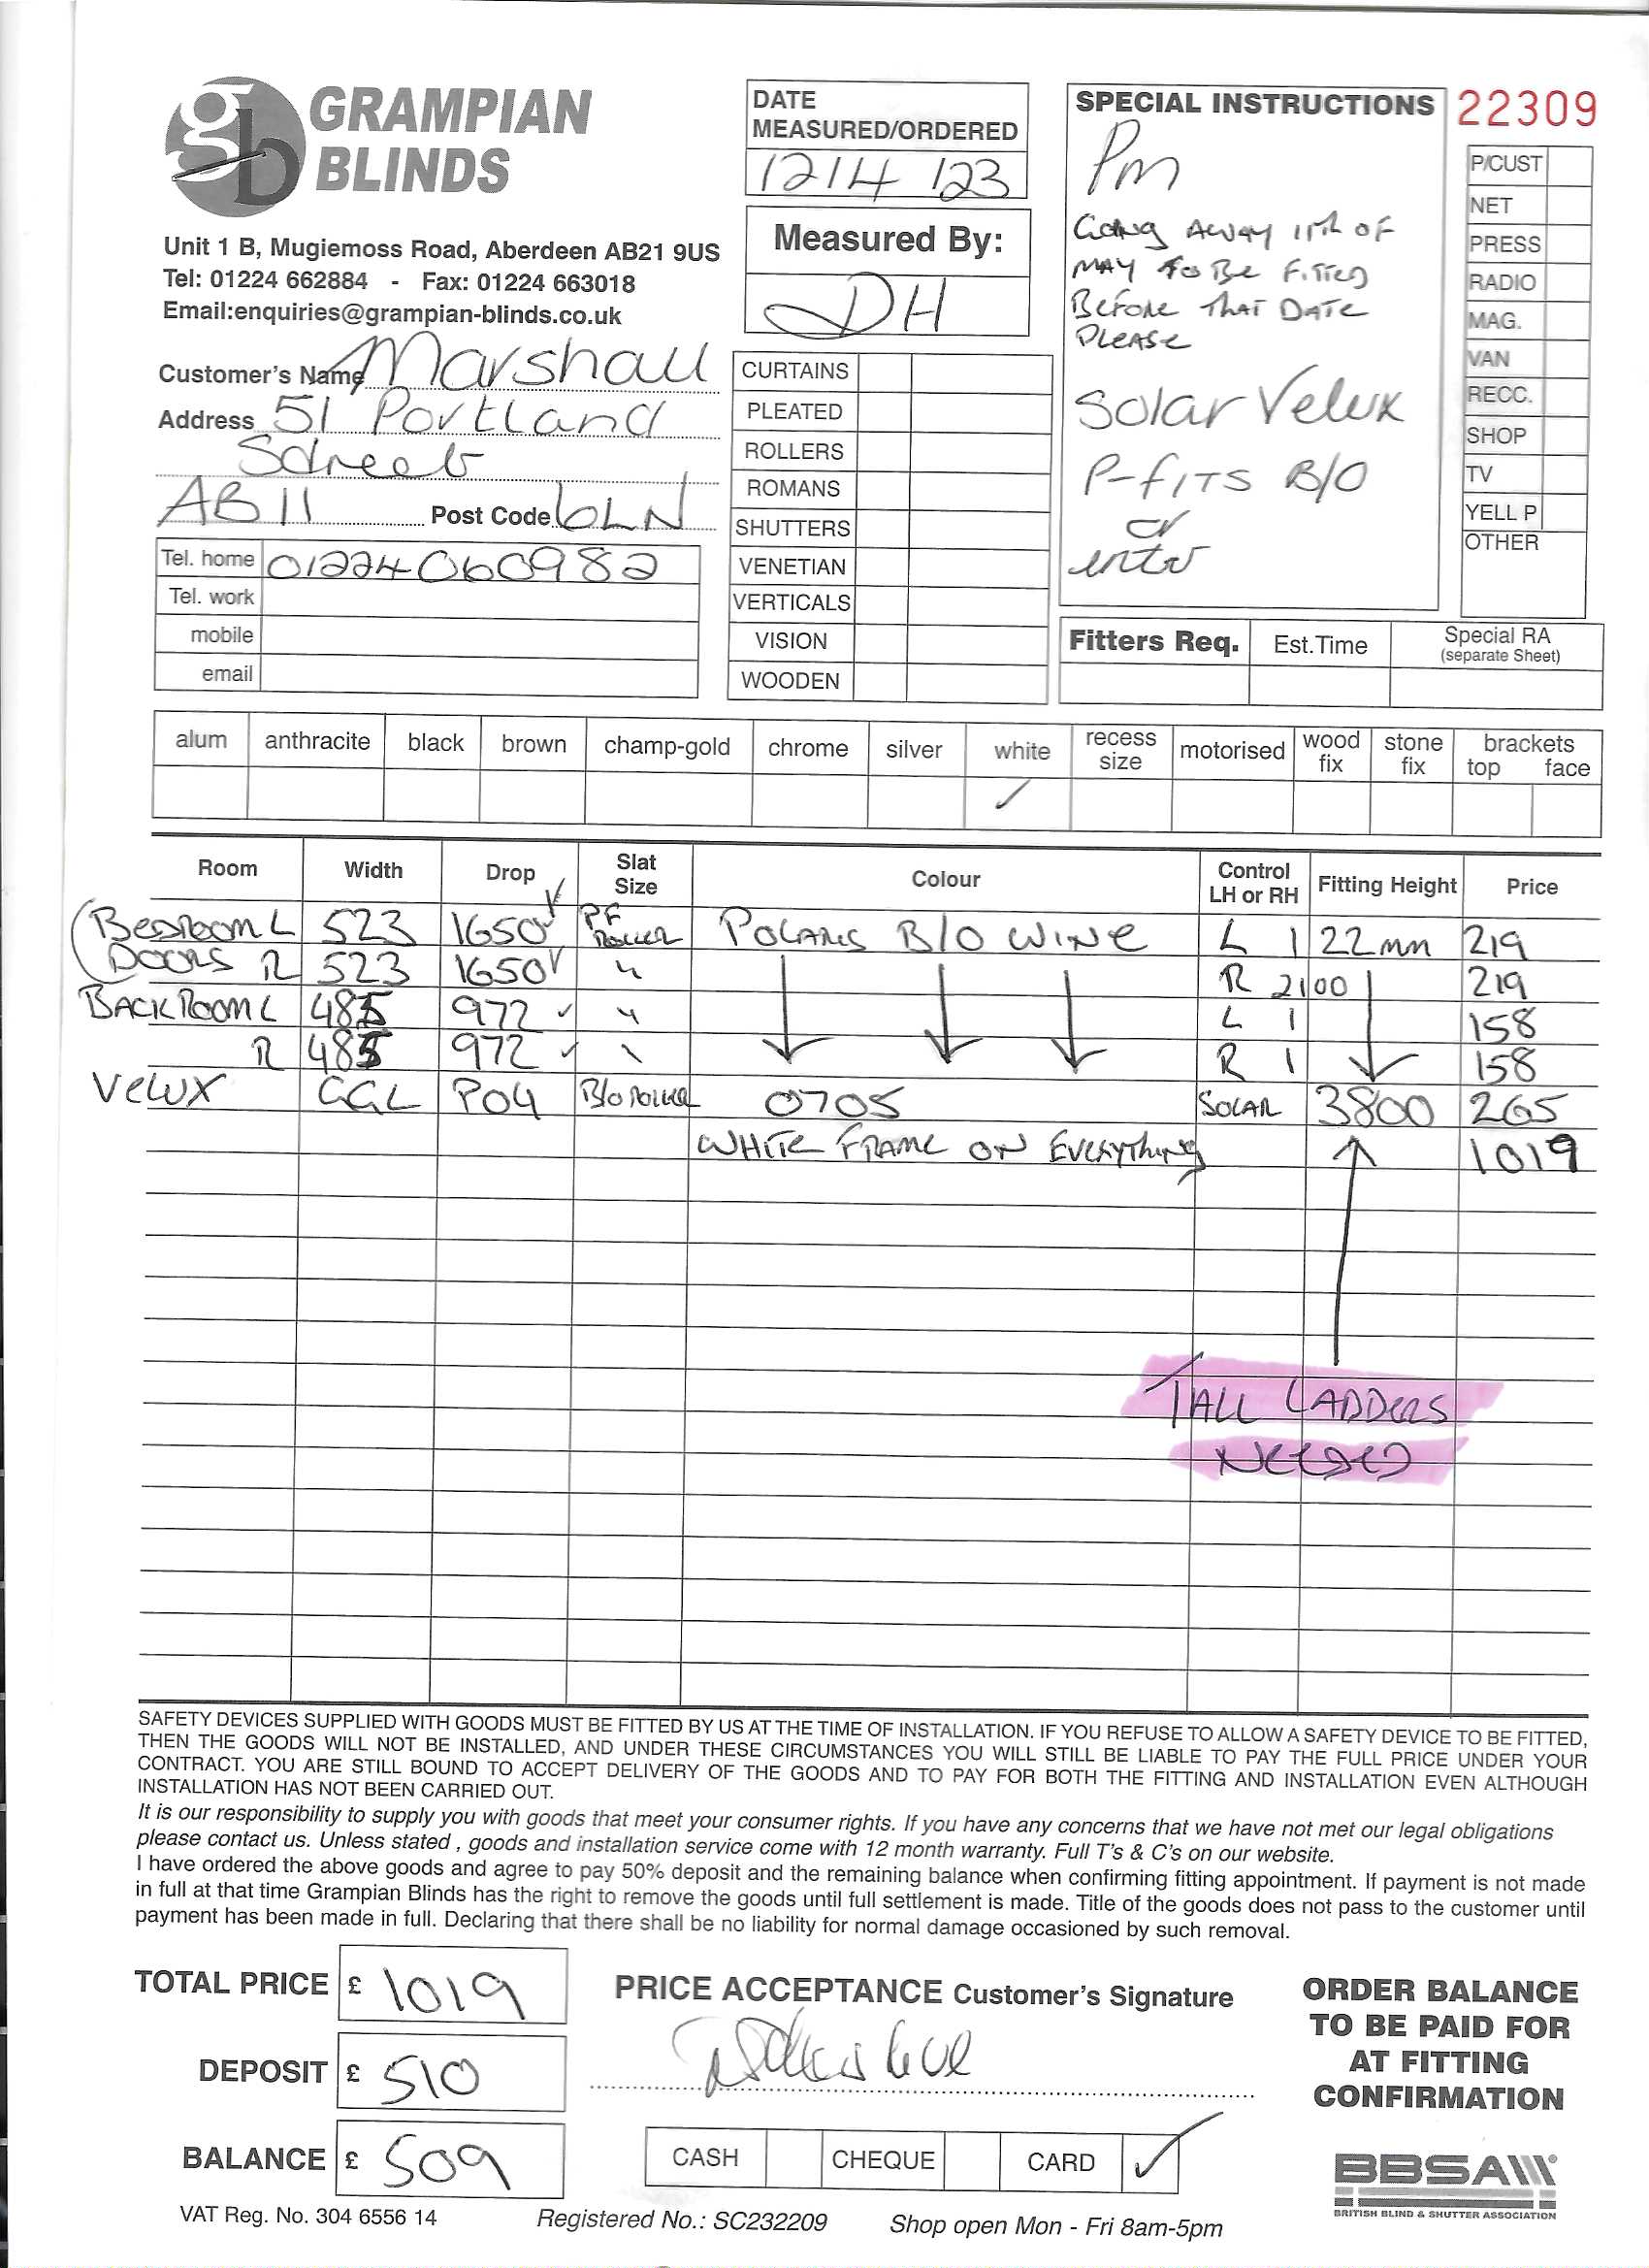 GRAMPIAN
BLINDS
Unit 1 B, Mugiemoss Road, Aberdeen AB21 9US
Tel: 01224 662884 - Fax: 01224 663018
Email:enquiries@grampian-blinds.co.uk
DATE
MEASURED/ORDERED
12/4/23
Measured By:
DH
SPECIAL INSTRUCTIONS
Pm
GOING AWAY 11th OF
MAY TO BE FITTED
BEFORE THAT DATE
PLEASE
Solar Velux
P-FITS B/O
or
22309
P/CUST
NET
PRESS
RADIO
MAG.
VAN
RECC.
SHOP
TV
YELL P
OTHER
Customer's Name Marshall
Address 51 Portland
Street
AB11 Post Code 6LN
Tel. home 01224060982
Tel. work
mobile
email
CURTAINS
PLEATED
ROLLERS
ROMANS
SHUTTERS
VENETIAN
VERTICALS
VISION
WOODEN
Fitters Req. Est.Time Special RA
(separate Sheet)
alum anthracite black brown champ-gold chrome silver white recess size motorised wood fix stone fix brackets top face
✓
Room Width Drop Slat Size Colour Control LH or RH Fitting Height Price
BEDROOM L 523 1650 ✓ PF ROLLER POLARIS B/O WINE L 1 22mm 219
DOORS R 523 1650 ✓ " R 2100 219
BACK ROOM L 485 972 ✓ " L 1 158
R 485 972 ✓ " R 1 158
VELUX GGL P04 B/O ROLLER 0705 SOLAR 3800 265
WHITE FRAME ON EVERYTHING 1019
TALL LADDERS
NEEDED
SAFETY DEVICES SUPPLIED WITH GOODS MUST BE FITTED BY US AT THE TIME OF INSTALLATION. IF YOU REFUSE TO ALLOW A SAFETY DEVICE TO BE FITTED,
THEN THE GOODS WILL NOT BE INSTALLED, AND UNDER THESE CIRCUMSTANCES YOU WILL STILL BE LIABLE TO PAY THE FULL PRICE UNDER YOUR
CONTRACT. YOU ARE STILL BOUND TO ACCEPT DELIVERY OF THE GOODS AND TO PAY FOR BOTH THE FITTING AND INSTALLATION EVEN ALTHOUGH
INSTALLATION HAS NOT BEEN CARRIED OUT.
It is our responsibility to supply you with goods that meet your consumer rights. If you have any concerns that we have not met our legal obligations
please contact us. Unless stated , goods and installation service come with 12 month warranty. Full T's & C's on our website.
I have ordered the above goods and agree to pay 50% deposit and the remaining balance when confirming fitting appointment. If payment is not made
in full at that time Grampian Blinds has the right to remove the goods until full settlement is made. Title of the goods does not pass to the customer until
payment has been made in full. Declaring that there shall be no liability for normal damage occasioned by such removal.
TOTAL PRICE £ 1019
DEPOSIT £ 510
BALANCE £ 509
PRICE ACCEPTANCE Customer's Signature
CASH CHEQUE CARD ✓
ORDER BALANCE
TO BE PAID FOR
AT FITTING
CONFIRMATION
BBSA
BRITISH BLIND & SHUTTER ASSOCIATION
VAT Reg. No. 304 6556 14 Registered No.: SC232209 Shop open Mon - Fri 8am-5pm